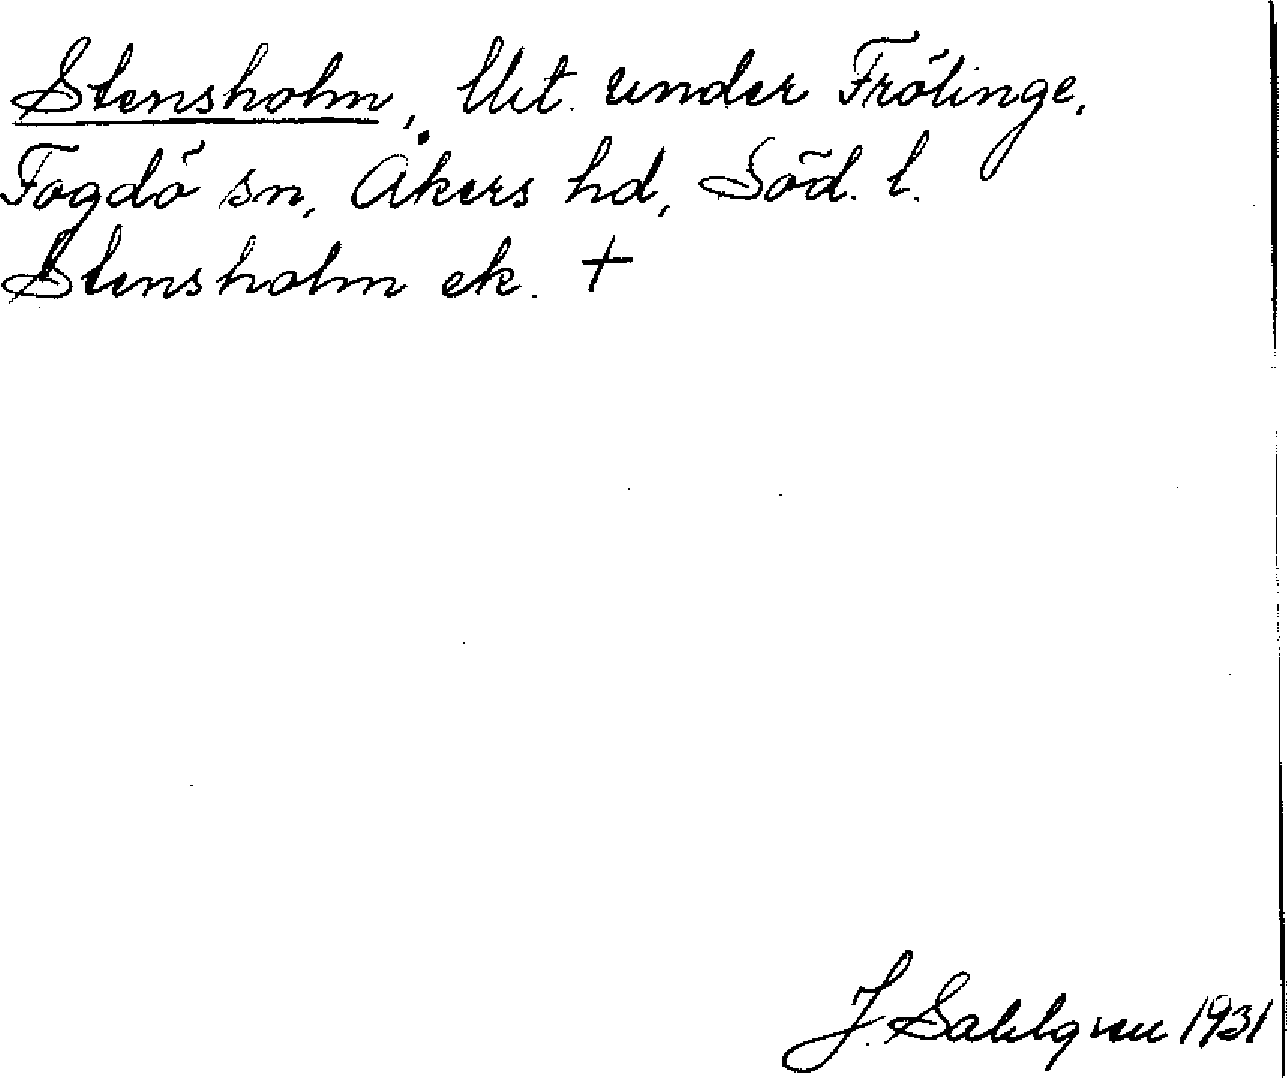 Stensholm, Utt. under Frölinge,
Fogdö sn, Åkers hd, Söd. l.
Stensholm ek. +
J. Sahlgren 1931